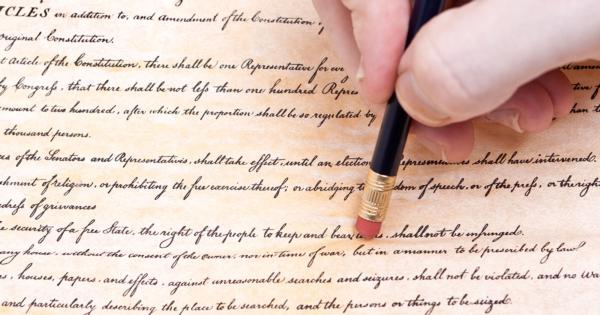 ICLES in addition to, and Amendment of the Constitution
riginal Constitution.
t Article of the Constitution, there shall be one Representative for eve
by Congreſs, that there shall be not leſs than one hundred Repres tive f
amount to two hundred, after which the proportion shall be so regulated by than
thousand persons.
es of the Senators and Representatives, shall take effect, until an election shall have intervened.
shment of religion, or prohibiting the free exercise thereof; or abridging dom of speech, or of the preſs, or the right
dreſs of grievances
e security of a free State, the right of the people to keep and bear shall not be infringed.
any house, without the consent of the owner, nor in time of war, but in a manner to be prescribed by law.
s, houses, papers, and effects, against unreasonable searches and seizures, shall not be violated, and no Wa
and particularly describing the place to be searched, and the persons or things to be seized.